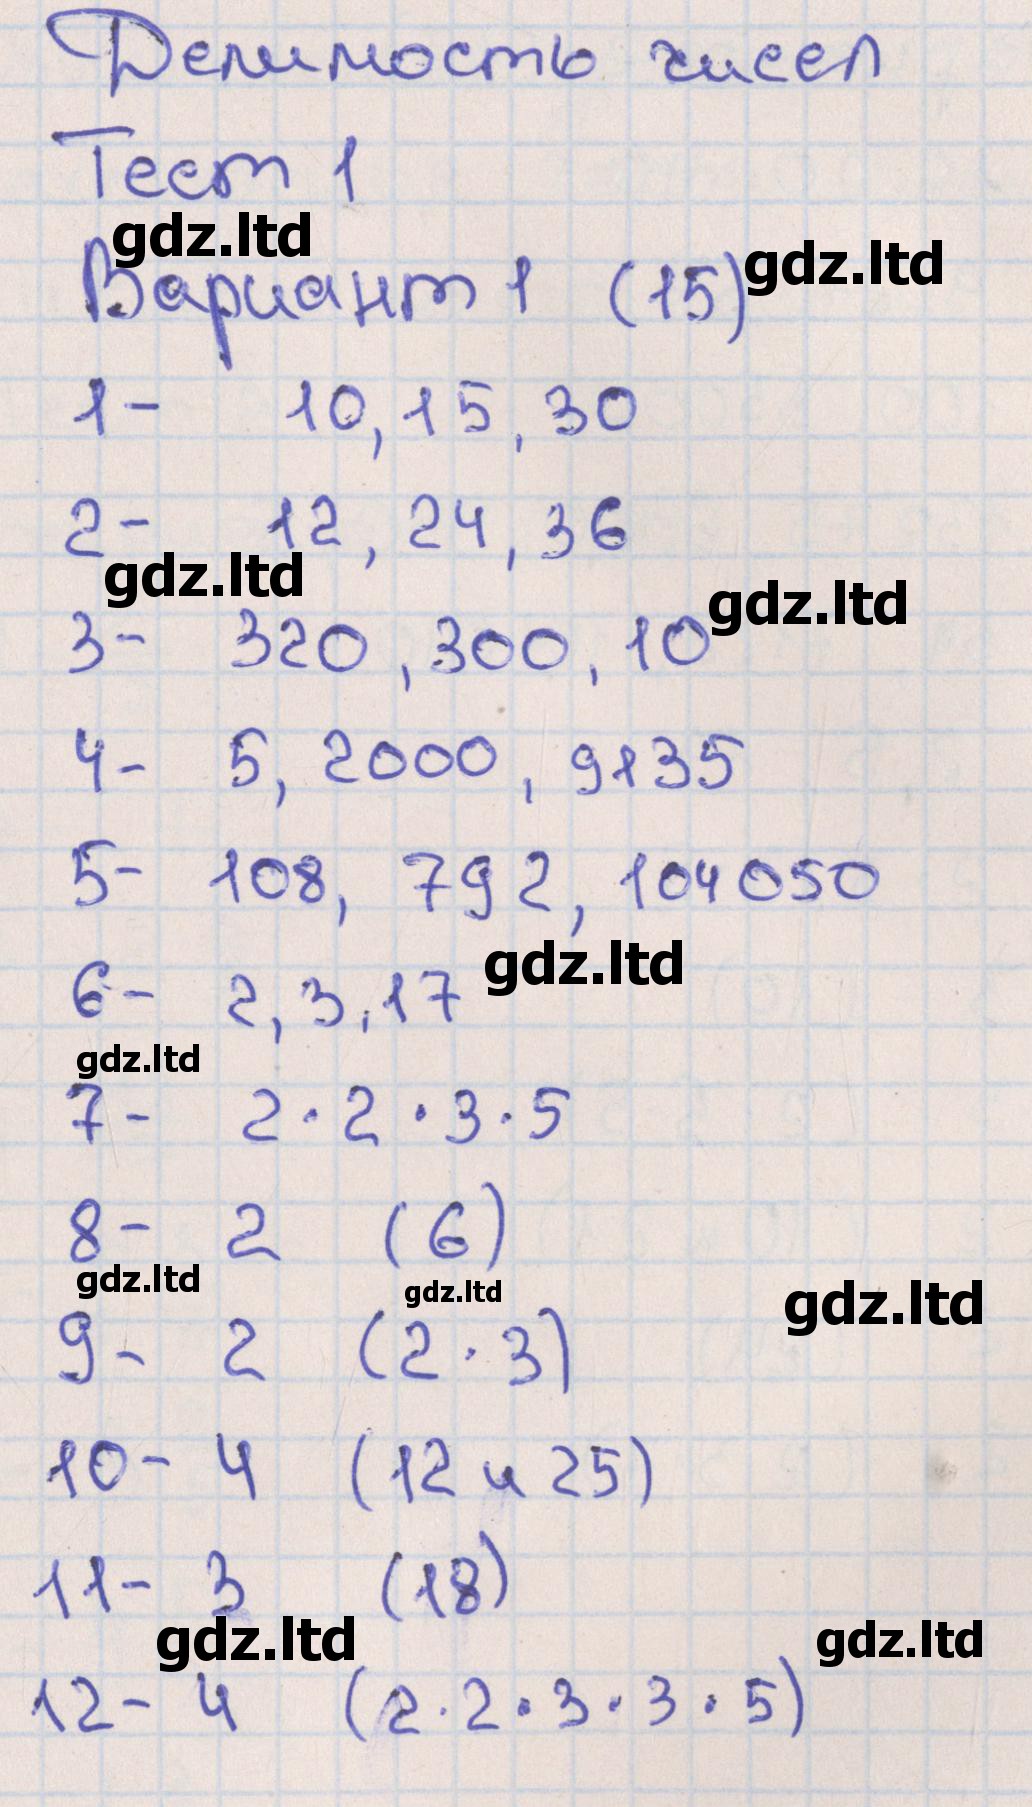 Делимость чисел
Тест 1
gdz.ltd
Вариант 1 (15) gdz.ltd
1- 10, 15, 30
2- 12, 24, 36
gdz.ltd gdz.ltd
3- 320, 300, 10
4- 5, 2000, 9135
5- 108, 792, 104050
gdz.ltd
6- 2, 3, 17
gdz.ltd
7- 2 · 2 · 3 · 5
8- 2 (6)
gdz.ltd gdz.ltd gdz.ltd
9- 2 (2 · 3)
10- 4 (12 и 25)
11- 3 (18)
gdz.ltd gdz.ltd
12- 4 (2 · 2 · 3 · 3 · 5)